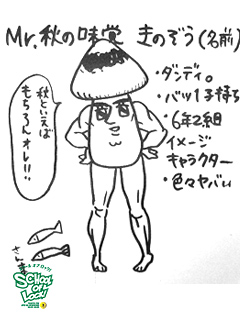 Mr.秋の味覚 きのぞう(名前)
秋といえば
もちろんオレ!!
・ダンディ。
・バツ1子持ち
・6年2組
イメージ
キャラクター
・色々ヤバい
さんま
SCHOOL
OF
LOCK!